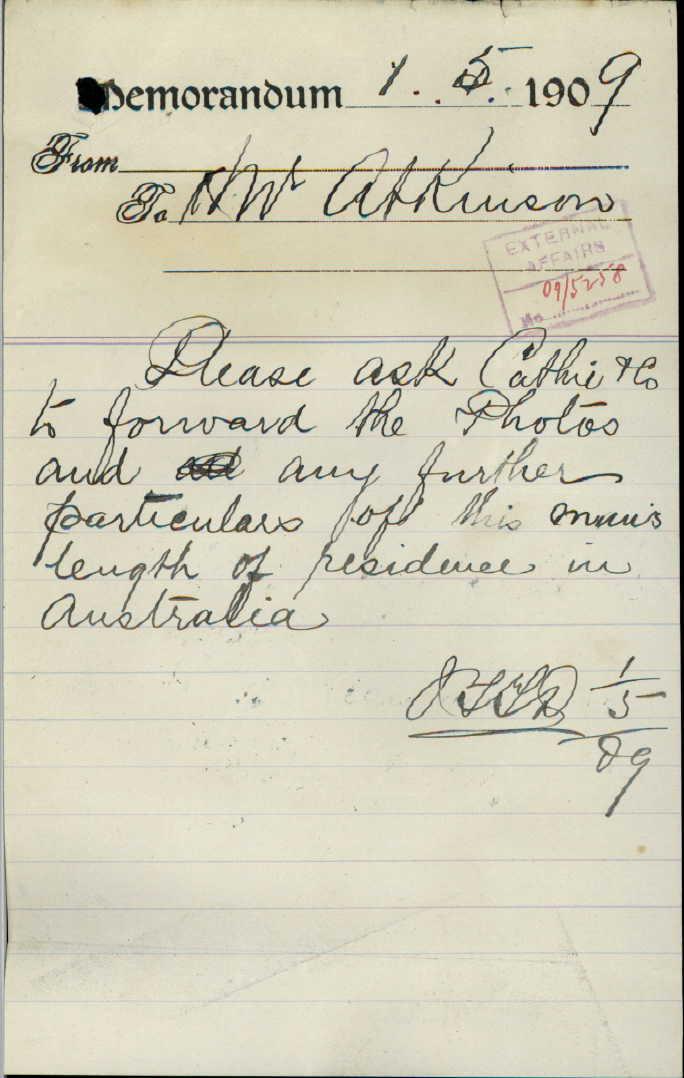 Memorandum 1. 5. 1909
From
To Mr Atkinson
EXTERNAL
AFFAIRS
09/5258
No
Please ask Cathie & Co
to forward the Photos
and any further
particulars of this man's
length of residence in
Australia
1/5/09